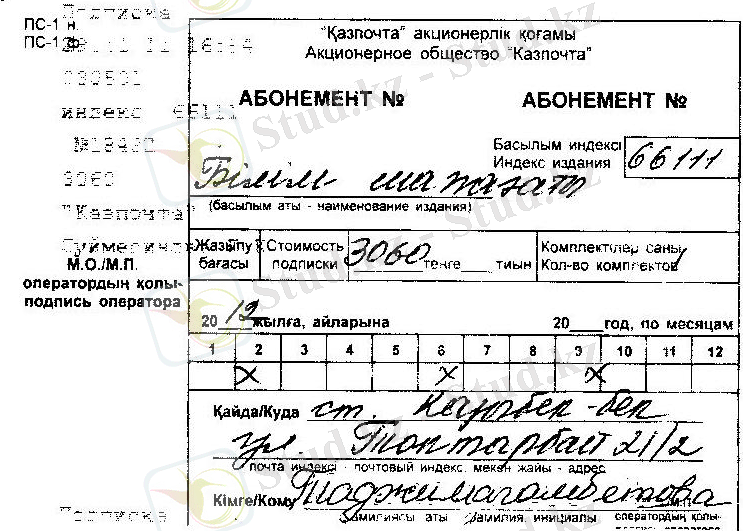 Подписка
ПС-1 н.
ПС-1 ф.
"Қазпочта" акционерлік қоғамы
Акционерное общество "Казпочта"
индекс 66111
АБОНЕМЕНТ № АБОНЕМЕНТ №
Басылым индексі
Индекс издания 66111
3060
Білім шапағаты
(басылым аты - наименование издания)
"Казпочта"
Жазылу бағасы
Стоимость подписки 3060 теңге ___ тиын
Комплектілер саны
Кол-во комплектов 1
М.О./М.П.
оператордың қолы-
подпись оператора
2012 жылға, айларына 20___год, по месяцам
1 2 3 4 5 6 7 8 9 10 11 12
х х х
Қайда/Куда ст. Казыбек-бек
ул. Токтарбай 21/2
почта индексі - почтовый индекс, мекен жайы - адрес
Кімге/Кому Таджимагамбетова
фамилиясы аты фамилия инициалы
оператордың қолы-
Подписка
Stud.kz - Stud.kz